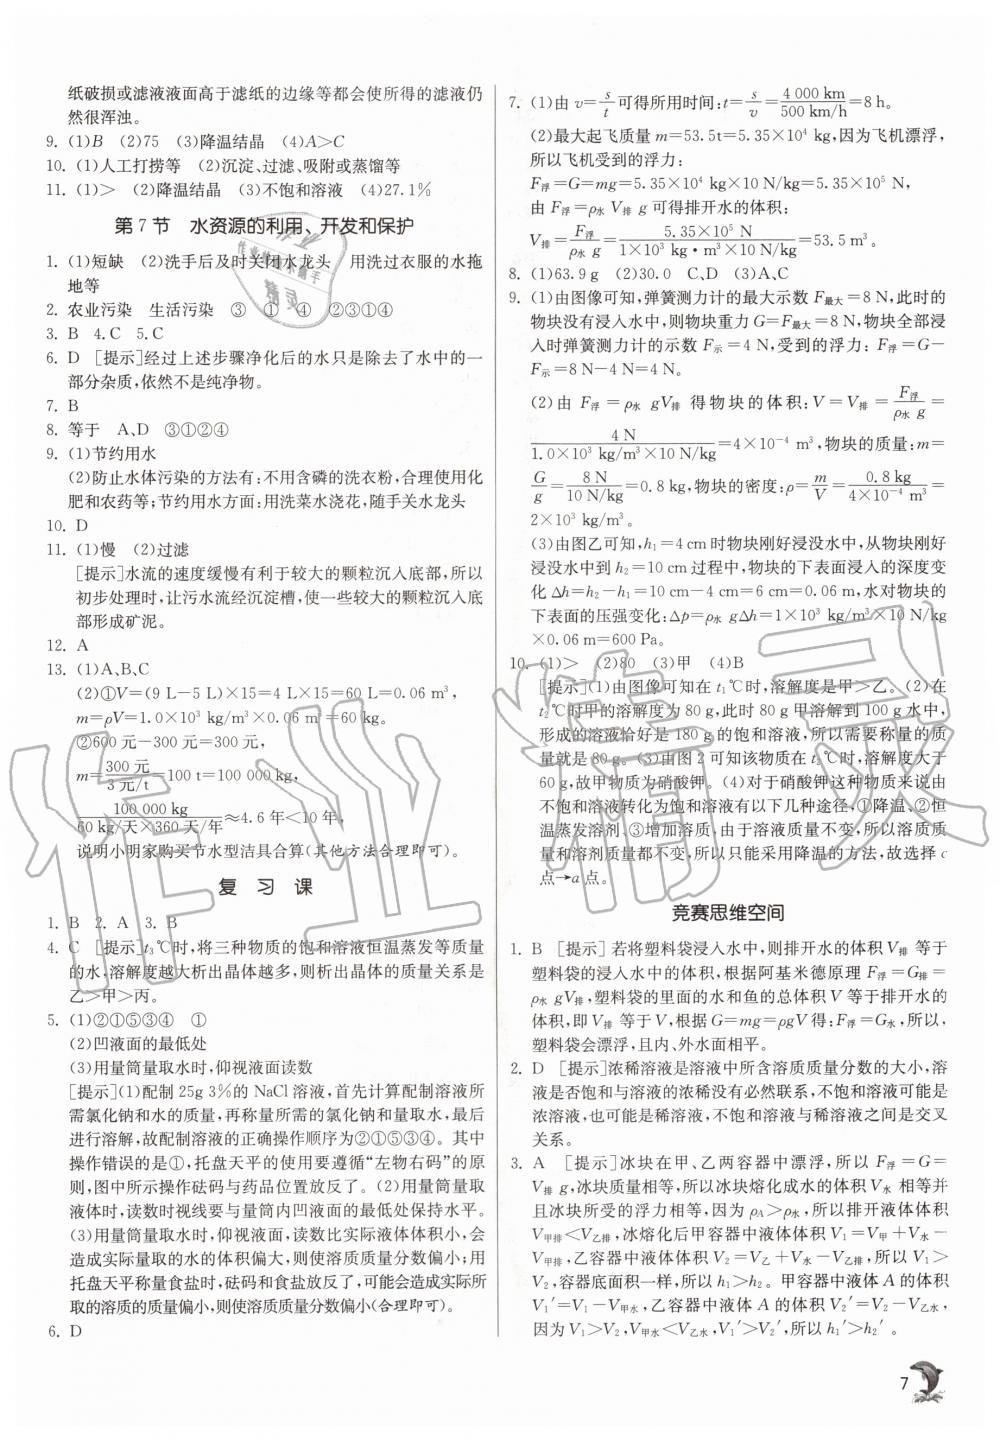 纸破损或滤液液面高于滤纸的边缘等都会使所得的滤液仍
然很浑浊。
9. (1)B (2)75 (3)降温结晶 (4)A>C
10. (1)人工打捞等 (2)沉淀、过滤、吸附或蒸馏等
11. (1)> (2)降温结晶 (3)不饱和溶液 (4)27.1%
第7节 水资源的利用、开发和保护
1. (1)短缺 (2)洗手后及时关闭水龙头 用洗过衣服的水拖
地等
2. 农业污染 生活污染 ③ ① ④ ②①③④
3. B 4. C 5. C
6. D [提示]经过上述步骤净化后的水只是除去了水中的一
部分杂质,依然不是纯净物。
7. B
8. 等于 A、D ③①②④
9. (1)节约用水
(2)防止水体污染的方法有:不用含磷的洗衣粉,合理使用化
肥和农药等;节约用水方面:用洗菜水浇花,随手关水龙头
10. D
11. (1)慢 (2)过滤
[提示]水流的速度缓慢有利于较大的颗粒沉入底部,所以
初步处理时,让污水流经沉淀槽,使一些较大的颗粒沉入底
部形成矿泥。
12. A
13. (1)A、B、C
(2)①V=(9 L-5 L)×15=4 L×15=60 L=0.06 m³,
m=ρV=1.0×10³ kg/m³×0.06 m³=60 kg。
②600 元-300 元=300 元,
m=300 元/3 元/t=100 t=100 000 kg,
100 000 kg/60 kg/天×360 天/年≈4.6 年<10 年,
说明小明家购买节水型洁具合算(其他方法合理即可)。
复 习 课
1. B 2. A 3. B
4. C [提示]t₃℃时,将三种物质的饱和溶液恒温蒸发等质量
的水,溶解度越大析出晶体越多,则析出晶体的质量关系是
乙>甲>丙。
5. (1)②①⑤③④ ①
(2)凹液面的最低处
(3)用量筒量取水时,仰视液面读数
[提示](1)配制 25g 3%的 NaCl 溶液,首先计算配制溶液所
需氯化钠和水的质量,再称量所需的氯化钠和量取水,最后
进行溶解,故配制溶液的正确操作顺序为②①⑤③④。其中
操作错误的是①,托盘天平的使用要遵循“左物右码”的原
则,图中所示操作砝码与药品位置放反了。(2)用量筒量取
液体时,读数时视线要与量筒内凹液面的最低处保持水平。
(3)用量筒量取水时,仰视液面,读数比实际液体体积小,会
造成实际量取的水的体积偏大,则使溶质质量分数偏小;用
托盘天平称量食盐时,砝码和食盐放颠倒了,可能会造成实际所
取的溶质的质量偏小,则使溶质质量分数偏小(合理即可)。
6. D
7. (1)由 v=s/t可得所用时间:t=s/v=4 000 km/500 km/h=8 h。
(2)最大起飞质量 m=53.5t=5.35×10⁴ kg,因为飞机漂浮,
所以飞机受到的浮力:
F浮=G=mg=5.35×10⁴ kg×10 N/kg=5.35×10⁵ N,
由 F浮=ρ水 V排 g 可得排开水的体积:
V排=F浮/ρ水 g=5.35×10⁵ N/1×10³ kg·m³×10 N/kg=53.5 m³。
8. (1)63.9 g (2)30.0 C、D (3)A、C
9. (1)由图像可知,弹簧测力计的最大示数 F最大=8 N,此时的
物块没有浸入水中,则物块重力 G=F最大=8 N,物块全部浸
入时弹簧测力计的示数 F示=4 N,受到的浮力:F浮=G-
F示=8 N-4 N=4 N。
(2)由 F浮=ρ水 gV排 得物块的体积:V=V排=F浮/ρ水 g=
4 N/1.0×10³ kg/m³×10 N/kg=4×10⁻⁴ m³,物块的质量:m=
G/g=8 N/10 N/kg=0.8 kg,物块的密度:ρ=m/V=0.8 kg/4×10⁻⁴ m³=
2×10³ kg/m³。
(3)由图乙可知,h₁=4 cm时物块刚好浸没水中,从物块刚好
浸没水中到 h₂=10 cm过程中,物块的下表面浸入的深度变
化 Δh=h₂-h₁=10 cm-4 cm=6 cm=0.06 m,水对物块的
下表面的压强变化:Δp=ρ水 gΔh=1×10³ kg/m³×10 N/kg
×0.06 m=600 Pa。
10. (1)> (2)80 (3)甲 (4)B
[提示](1)由图像可知在 t₁℃时,溶解度是甲>乙。(2)在
t₂℃时甲的溶解度为 80 g,此时 80 g甲溶解到 100 g水中,
形成的溶液恰好是 180 g的饱和溶液,所以需要称量的质
量就是 80 g。(3)由图 2 可知该物质在 t₃℃时,溶解度大于
60 g,故甲物质为硝酸钾。(4)对于硝酸钾这种物质来说由
不饱和溶液转化为饱和溶液有以下几种途径,①降温、②恒
温蒸发溶剂、③增加溶质,由于溶液质量不变,所以溶质质
量和溶剂质量都不变,所以只能采用降温的方法,故选择 c
点→a 点。
竞赛思维空间
1. B [提示]若将塑料袋浸入水中,则排开水的体积 V排 等于
塑料袋的浸入水中的体积,根据阿基米德原理 F浮=G排=
ρ水 gV排,塑料袋的里面的水和鱼的总体积 V等于排开水的
体积,即 V排 等于 V,根据 G=mg=ρgV得:F浮=G水,所以,
塑料袋会漂浮,且内、外水面相平。
2. D [提示]浓稀溶液是溶液中所含溶质质量分数的大小,溶
液是否饱和与溶液的浓稀没有必然联系,不饱和溶液可能是
浓溶液,也可能是稀溶液,不饱和溶液与稀溶液之间是交叉
关系。
3. A [提示]冰块在甲、乙两容器中漂浮,所以 F浮=G=
V排 g,冰块质量相等,所以冰块熔化成水的体积 V水 相等并
且冰块所受的浮力相等,因为 ρA>ρ水,所以排开液体体积
V甲排<V乙排,冰熔化后甲容器中液体体积 V₁=V甲+V水-
V甲排,乙容器中液体体积 V₂=V乙+V水-V乙排,所以 V₁>
V₂,容器底面积一样,所以 h₁>h₂。甲容器中液体 A 的体积
V₁′=V₁-V甲水,乙容器中液体 A 的体积 V₂′=V₂-V乙水,
因为 V₁>V₂,V甲水<V乙水,V₁′>V₂′,所以 h₁′>h₂′。
7
作业精灵